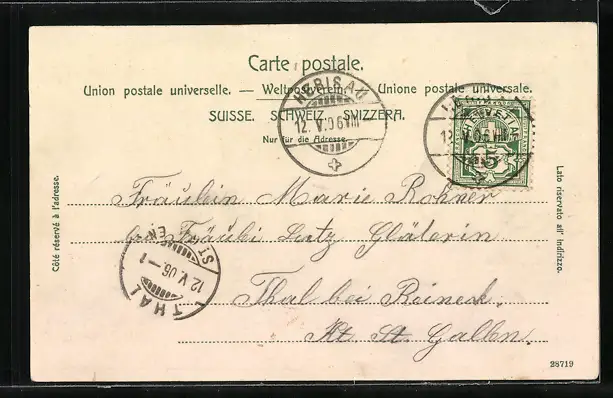 Carte postale.
Union postale universelle. — Weltpostverein. — Unione postale universale.
SUISSE. SCHWEIZ. SVIZZERA.
Nur für die Adresse.
HERISAU
12. V. 06 VIII
HERISAU
12. V. 06 VIII
HELVETIA
5
Côté réservé à l'adresse.
Lato riservato all' indirizzo.
Fräulein Marie Rohner
Fräubi Lutz Gläterin
Thal bei Reineck.
Kt. St. Gallen.
THAL
12. V. 06 – 1
ST. GALLEN
28719